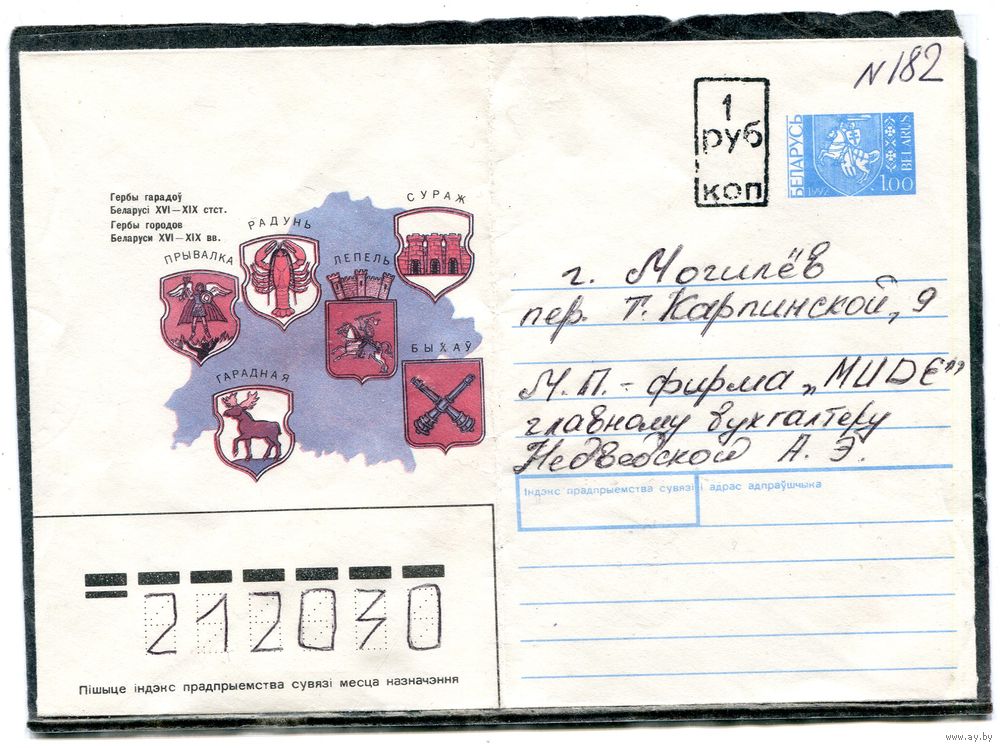 N 182
1
руб
коп
БЕЛАРУСЬ
1992
1.00
BELARUS
Гербы гарадоў
Беларусі XVI—XIX стст.
Гербы городов
Беларуси XVI—XIX вв.
СУРАЖ
РАДУНЬ
ЛЕПЕЛЬ
ПРЫВАЛКА
БЫХАЎ
ГАРАДНАЯ
г. Могилёв
пер. Т. Карпинской, 9
М.П. - фирма „МИДЄ"
главному бухгалтеру
Недведской А. Э.
Індэкс прадпрыемства сувязі і адрас адпраўшчыка
212030
Пішыце індэкс прадпрыемства сувязі месца назначэння
www.ay.by